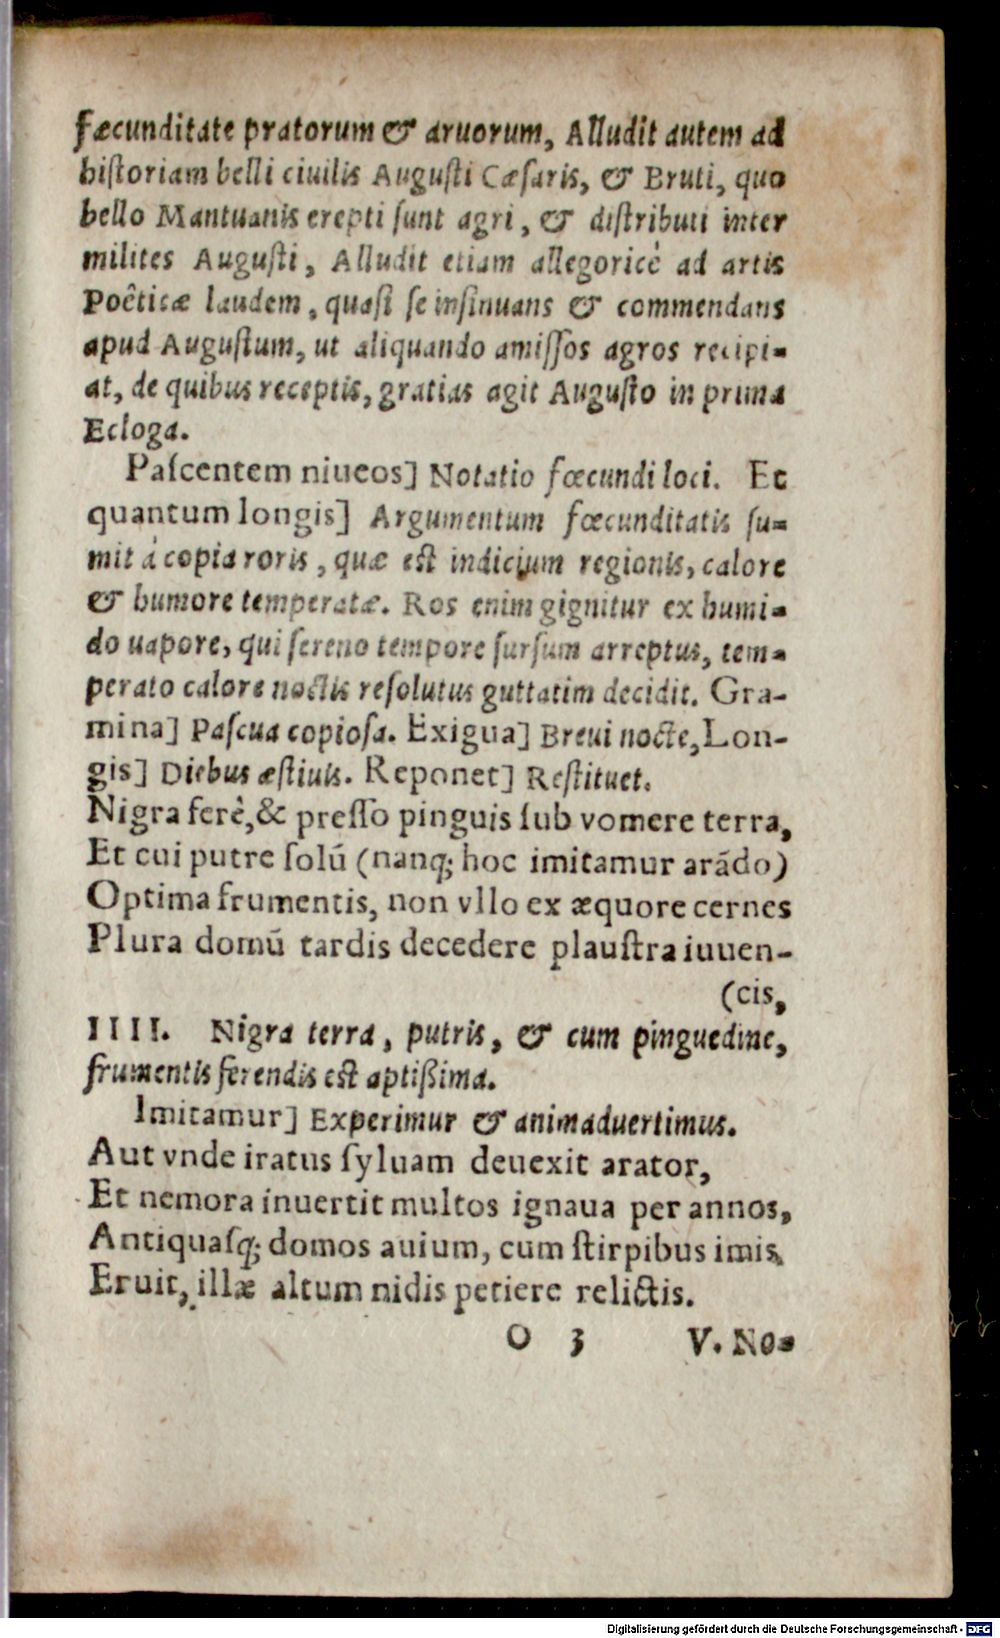 fæcunditate pratorum & aruorum, Alludit autem ad
historiam belli ciuilis Augusti Cæsaris, & Bruti, quo
bello Mantuanis erepti sunt agri, & distributi inter
milites Augusti, Alludit etiam allegoricè ad artis
Poêticæ laudem, quasi se insinuans & commendans
apud Augustum, ut aliquando amissos agros recipi-
at, de quibus receptis, gratias agit Augusto in prima
Ecloga.
Pascentem niueos] Notatio fœcundi loci. Et
quantum longis] Argumentum fœcunditatis su-
mit à copia roris, quæ est indicium regionis, calore
& humore temperatæ. Ros enim gignitur ex humi-
do uapore, qui sereno tempore sursum arreptus, tem-
perato calore noctis resolutus guttatim decidit. Gra-
mina] Pascua copiosa. Exigua] Breui nocte, Lon-
gis] Diebus æstiuis. Reponet] Restituet.
Nigra ferè, & presso pinguis sub vomere terra,
Et cui putre solū (nanq; hoc imitamur arādo)
Optima frumentis, non vllo ex æquore cernes
Plura domū tardis decedere plaustra iuuen-
(cis,
IIII. Nigra terra, putris, & cum pinguedine,
frumentis ferendis est aptißima.
Imitamur] Experimur & animaduertimus.
Aut vnde iratus syluam deuexit arator,
Et nemora inuertit multos ignaua per annos,
Antiquasq; domos auium, cum stirpibus imis
Eruit, illæ altum nidis petiere relictis.
O 3 V. No-
Digitalisierung gefördert durch die Deutsche Forschungsgemeinschaft - DFG